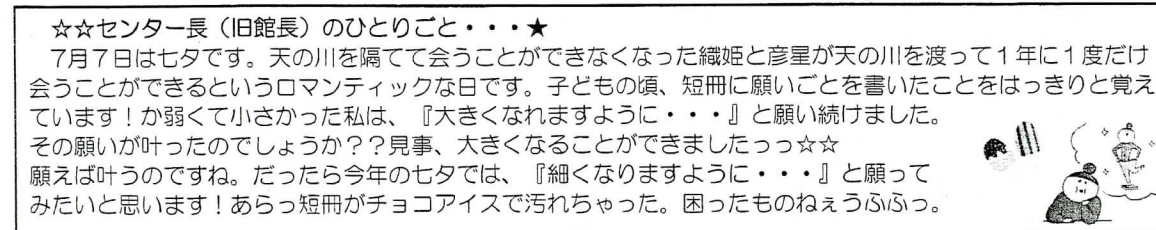 ☆☆センター長（旧館長）のひとりごと・・・★
7月7日は七夕です。天の川を隔てて会うことができなくなった織姫と彦星が天の川を渡って1年に1度だけ
会うことができるというロマンティックな日です。子どもの頃、短冊に願いごとを書いたことをはっきりと覚え
ています！か弱くて小さかった私は、『大きくなれますように・・・』と願い続けました。
その願いが叶ったのでしょうか？？見事、大きくなることができましたっっ☆☆
願えば叶うのですね。だったら今年の七夕では、『細くなりますように・・・』と願って
みたいと思います！あらっ短冊がチョコアイスで汚れちゃった。困ったものねぇうふふっ。